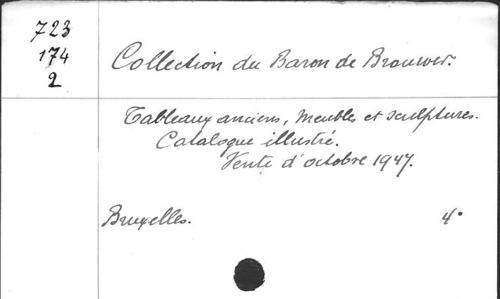 723
174
2
Collection du Baron de Brouwer.
Tableaux anciens, Meubles et sculptures.
Catalogue illustré.
Vente d'octobre 1947.
Bruxelles. 4°